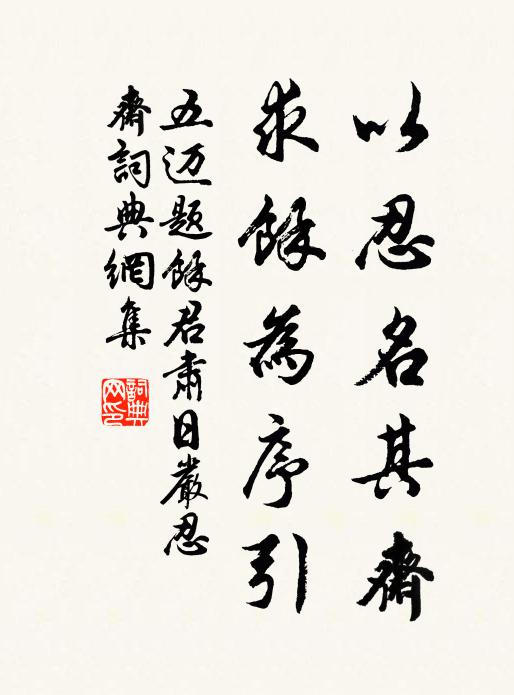 以忍名其齋
求餘為序引
五迈题餘君肅日嚴忍
齋詞典網集
詞典
网印